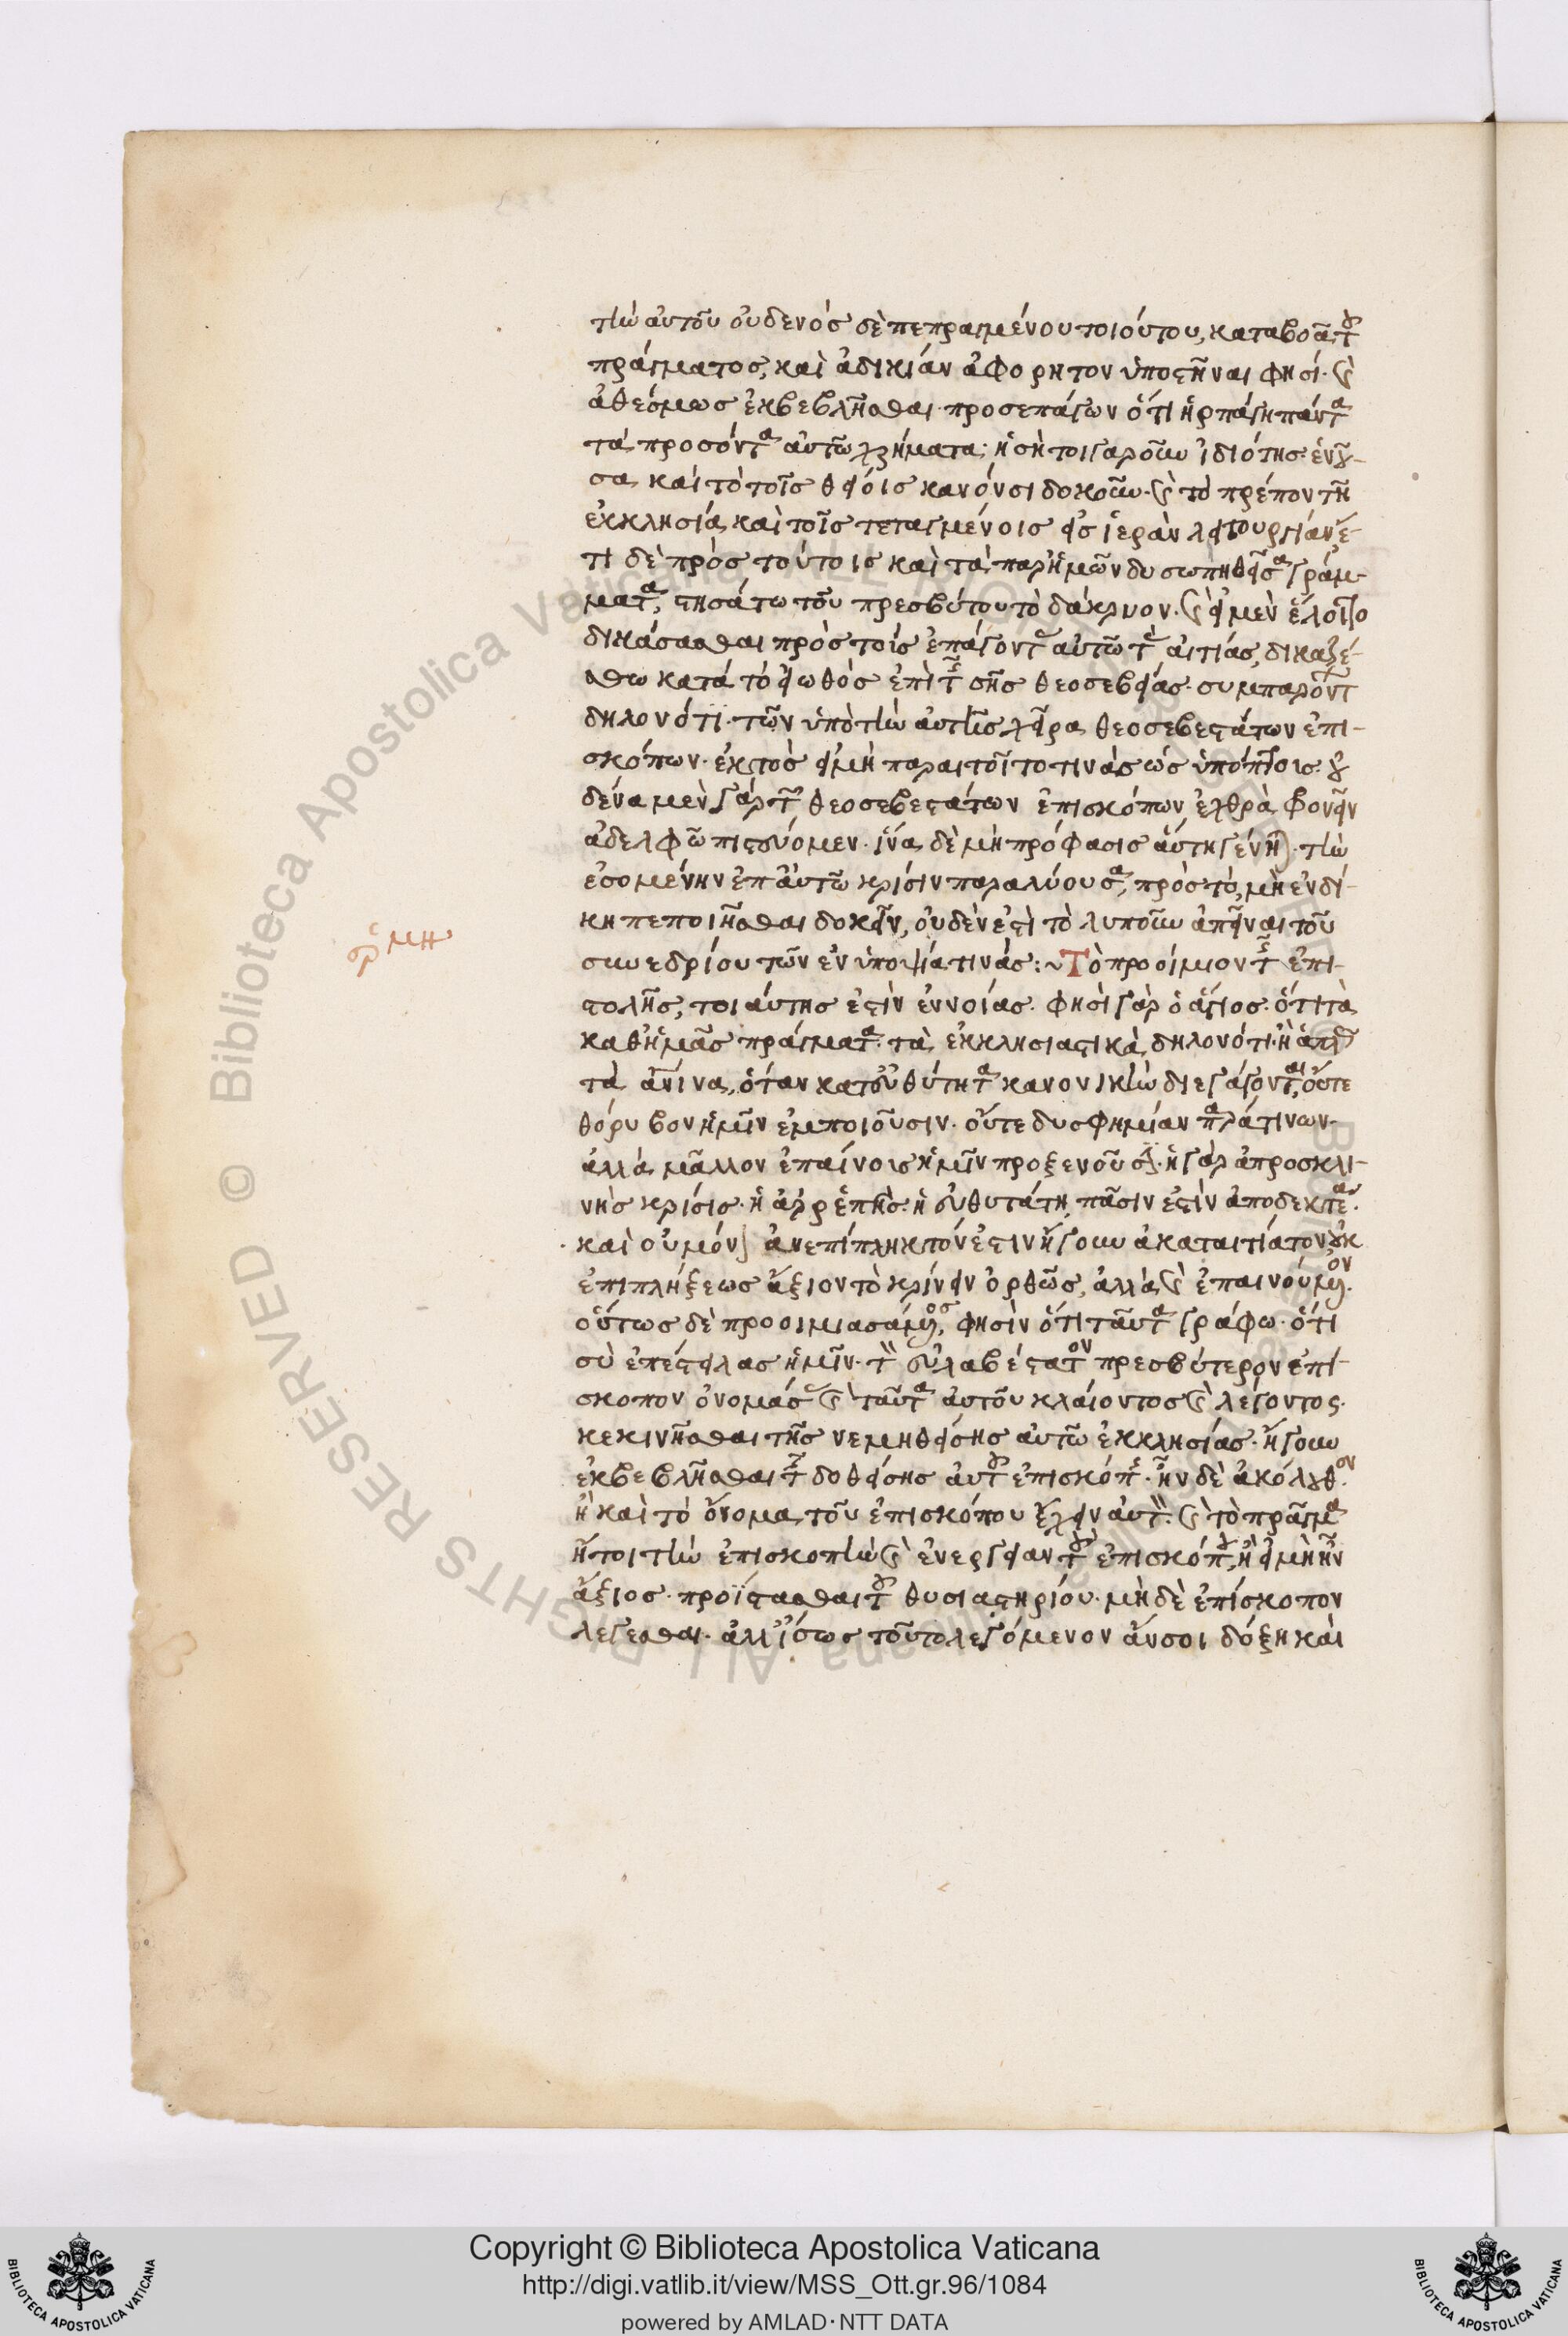 τὴν αὐτοῦ οὐδενὸς δὲ πεπραγμένου τοιούτου, καταβοᾶ τοῦ
πράγματος, καὶ ἀδικίαν ἀφόρητον ὑποστῆναι φησί. καὶ
ἀθέσμως ἐκβεβλῆσθαι. προσεπάγων ὅτι ἡρπάγη πάντα
τὰ προσόντα αὐτῶ χρήματα; ἡ σὴ τοιγαροῦν ἰδιότης. ἐννοή
σασα καὶ τὸ τοῖς θείοις κανόσι δοκοῦν. καὶ τὸ πρέπον τῆ
ἐκκλησία καὶ τοῖς τεταγμένοις εἰς ἱερὰν λειτουργίαν ἔ-
τι δὲ πρὸς τούτοις καὶ τὰ παρ' ἡμῶν δυσωπηθεῖσα γράμ-
ματα, στησάτω τοῦ πρεσβύτου τὸ δάκρυον. καὶ εἰ μὲν ἕλοιτο
δικάσασθαι πρὸς τοὺς ἐπάγοντας αὐτῶ τὰς αἰτίας, δικαζέ-
σθω κατὰ τὸ εἰωθὸς ἐπὶ τῆς σῆς θεοσεβείας. συμπαρόντων
δηλονότι. τῶν ὑπὸ τὴν αὐτῆς χεῖρα θεοσεβεστάτων ἐπι-
σκόπων. ἐκτὸς εἰ μὴ παραιτοῖτο τινὰς ὡς ὑπόπτους. οὐ
δένα μὲν γὰρ τῶν θεοσεβεστάτων ἐπισκόπων ἐχθρὰ φρονεῖν
ἀδελφῶ πιστεύομεν. ἵνα δὲ μὴ πρόφασις αὕτη γένηται. τὴν
ἐσομένην ἐπ' αὐτῶ κρίσιν παραλύουσα, πρὸς τὸ, μὴ ἐνδί-
κη πεποιῆσθαι δοκεῖν, οὐδὲν ἐστὶ τὸ λυποῦν ἀπεῖναι τοῦ
συνεδρίου τῶν ἐν ὑποψία τινάς: ~ Τὸ προοίμιον τῆς ἐπι-
στολῆς, τοιαύτης ἐστὶν ἐννοίας. φησὶ γὰρ ὁ ἅγιος. ὅτι τὰ
καθ' ἡμᾶς πράγματα. τὰ ἐκκλησιαστικὰ δηλονότι. ἢ ἁπλῶς
τὰ ἀνθρώπινα, ὅταν κατ' εὐθύτητα κανονικὴν διεξάγονται, οὔτε
θόρυβον ἡμῖν ἐμποιοῦσιν. οὔτε δυσφημίαν παρά τινων.
ἀλλὰ μᾶλλον ἐπαίνους ἡμῖν προξενοῦσι. ἡ γὰρ ἀπροσκλι-
νὴς κρίσις. ἡ ἀρρεπὴς. ἡ εὐθυτάτη, πᾶσιν ἐστὶν ἀποδεκτέα.
καὶ οὐ μόνον ἀνεπίπληκτόν ἐστιν ἤγουν ἀκαταιτίατον οὐκ
ἐπιπλήξεως ἄξιον τὸ κρίνειν ὀρθῶς, ἀλλὰ καὶ ἐπαινούμενον.
οὕτως δὲ προοιμιασάμενος, φησὶν ὅτι ταῦτα γράφω. ὅτι
σὺ ἐπέστειλας ἡμῖν. τὸν εὐλαβέστατον πρεσβύτερον ἐπί-
σκοπον ὀνομάσας καὶ ταῦτα αὐτοῦ κλαίοντος καὶ λέγοντος.
κεκινῆσθαι τῆς νεμηθείσης αὐτῶ ἐκκλησίας. ἤγουν
ἐκβεβλῆσθαι τῆς δοθείσης αὐτοῦ ἐπισκοπῆς. ἦν δὲ ἀκόλουθον.
ἢ καὶ τὸ ὄνομα τοῦ ἐπισκόπου ἔχειν αὐτὸν. καὶ τὸ πρᾶγμα
ἤτοι τὴν ἐπισκοπὴν καὶ ἐνεργεῖν τὰ τοῦ ἐπισκόπου, ἢ εἰ μὴ ἦν
ἄξιος. προΐστασθαι τοῦ θυσιαστηρίου. μὴ δὲ ἐπίσκοπον
λέγεσθαι. ἀλλ' ἴσως τοῦτο λεγόμενον ἄν σοι δόξη καὶ
Copyright © Biblioteca Apostolica Vaticana
http://digi.vatlib.it/view/MSS_Ott.gr.96/1084
powered by AMLAD·NTT DATA
BIBLIOTECA APOSTOLICA VATICANA
BIBLIOTECA APOSTOLICA VATICANA